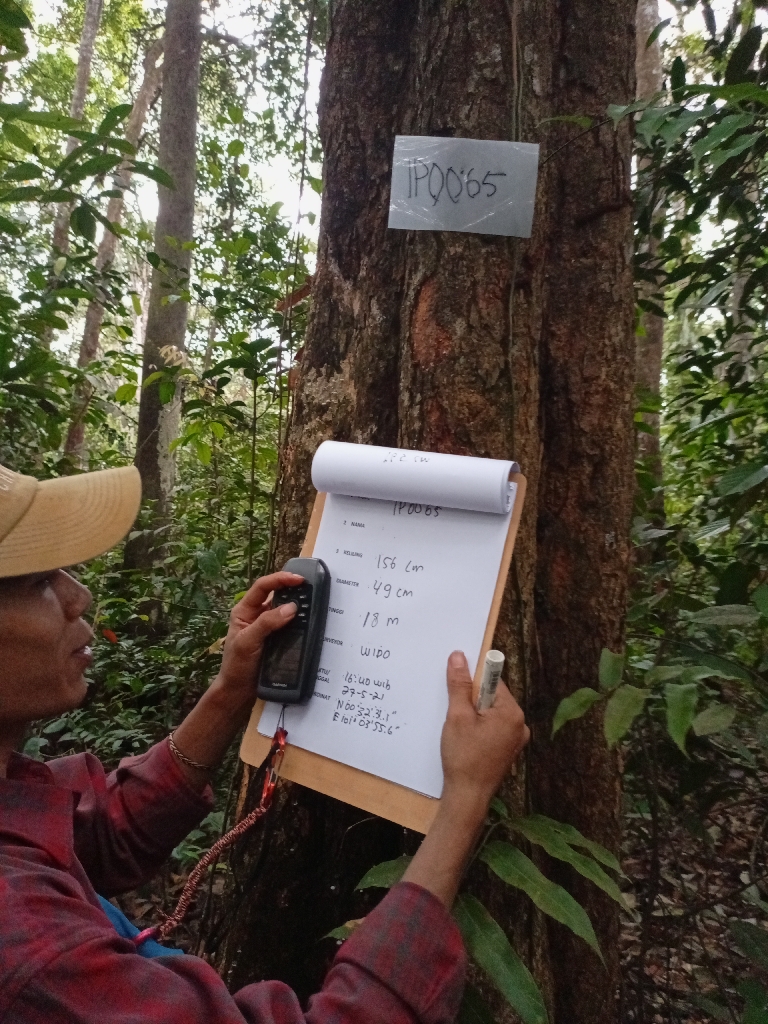 IP00065
IP00065
NAMA
KELILING 156 cm
DIAMETER 49 cm
TINGGI : 18 m
SURVEYOR : WIDO
16:40 wib
27-5-21
E 101° 03' 55.6"
GARMIN